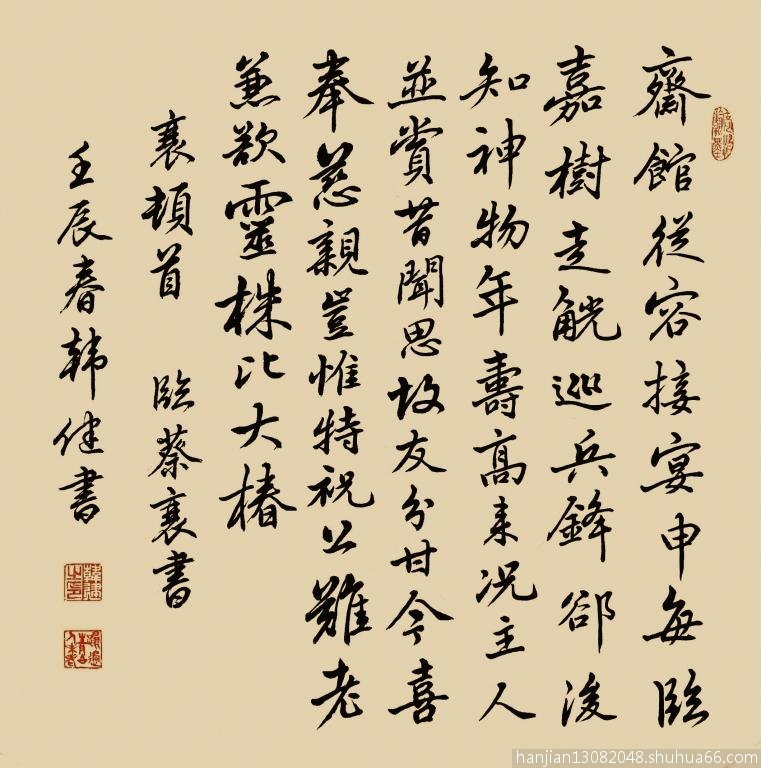 齋館從容接宴申每臨
嘉樹走觥巡兵鋒卻後
知神物年壽高来況主人
並賞昔聞思故友分甘今喜
奉慈親豈惟特祝公難老
兼欲靈株比大椿
襄頓首 臨蔡襄書
壬辰春韩健書
hanjian13082048.shuhua66.com